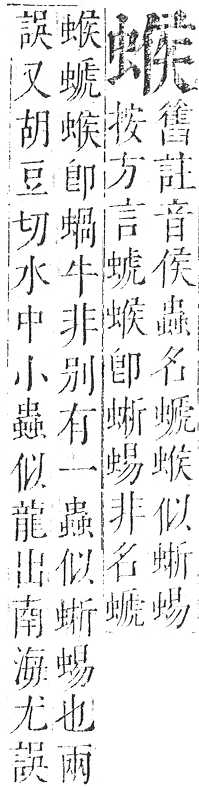 䗔
舊註音侯蟲名螔䗔似蜥蜴
按方言螔䗔卽蜥蜴非名螔
䗔螔䗔卽蝸牛非別有一蟲似蜥蜴也兩
誤又胡豆切水中小蟲似龍出南海尤誤